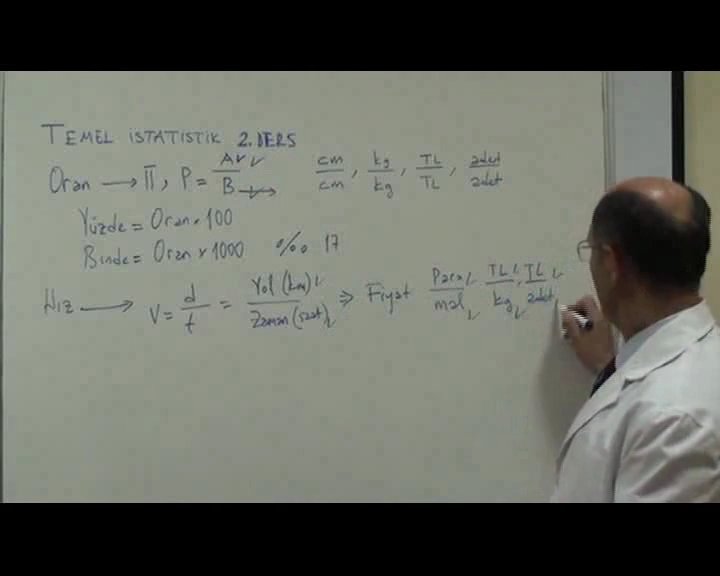 TEMEL İSTATİSTİK 2. DERS
Oran → π, P = A/B → cm/cm, kg/kg, TL/TL, adet/adet
Yüzde = Oran × 100
Binde = Oran × 1000 %00 17
Hız → V = d/t = Yol (km)/Zaman (saat) ⇒ Fiyat Para/mal TL/kg, TL/adet